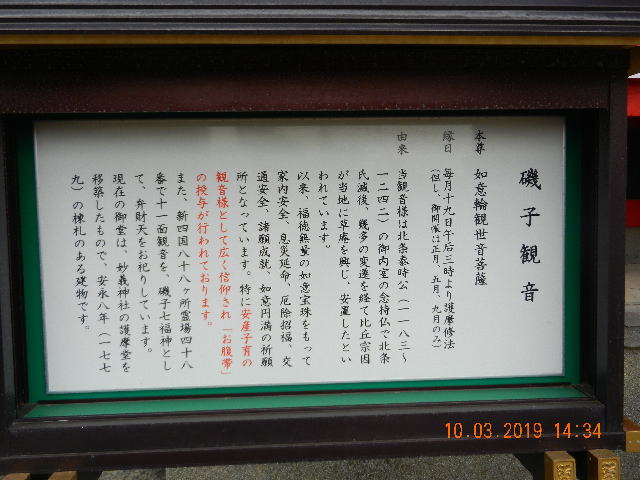 磯子観音
本尊　如意輪観世音菩薩
縁日　毎月十九日午后三時より護摩修法
（但し、御開帳は正月、五月、九月のみ）
由来　当観音様は北条泰時公（一一八三〜
一二四二）の御内室の念持仏で北条
氏滅後、幾多の変遷を経て比丘宗因
が当地に草庵を興し、安置したとい
われています。
以来、福徳無量の如意宝珠をもって
家内安全、息災延命、厄除招福、交
通安全、諸願成就、如意円満の祈願
所となっています。特に安産子育の
観音様として広く信仰され「お腹帯」
の授与が行われております。
また、新四国八十八ヶ所霊場四十八
番で十一面観音を、磯子七福神とし
て、弁財天をお祀りしています。
現在の御堂は、妙義神社の護摩堂を
移築したもので、安永八年（一七七
九）の棟札のある建物です。
10.03.2019 14:34